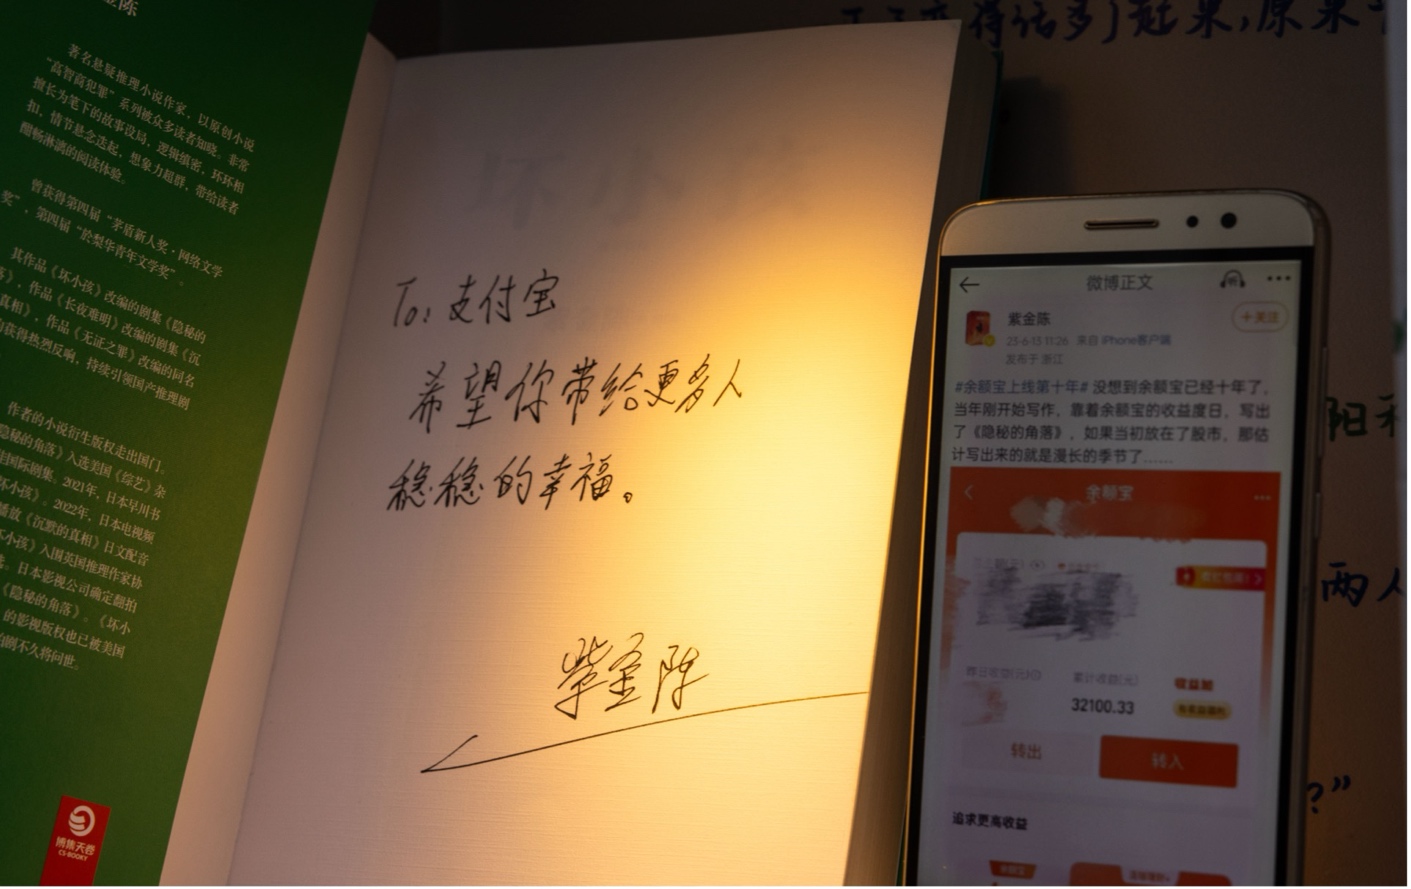 金陈
著名悬疑推理小说作家，以原创小说
“高智商犯罪”系列被众多读者知晓。非常
擅长为笔下的故事设局，逻辑缜密，环环相
扣，情节悬念迭起，想象力超群，带给读者
酣畅淋漓的阅读体验。
曾获得第四届“茅盾新人奖·网络文学
奖”，第四届“於梨华青年文学奖”。
其作品《坏小孩》改编的剧集《隐秘的
落》，作品《长夜难明》改编的剧集《沉
真相》，作品《无证之罪》改编的同名
获得热烈反响，持续引领国产推理剧
作者的小说衍生版权走出国门，
隐秘的角落》入选美国《综艺》杂
佳国际剧集。2021年，日本早川书
坏小孩》。2022年，日本电视频
播放《沉默的真相》日文配音
小孩》入围英国推理作家协
。日本影视公司确定翻拍
《隐秘的角落》。《坏小
的影视版权也已被美国
的不久将问世。
博集天卷
CS-BOOKY
坏小孩
To: 支付宝
希望你带给更多人
稳稳的幸福。
紫金陈
得话多)起来，原来
阳
两人
?”
微博正文
紫金陈
+关注
23-6-13 11:26 来自 iPhone客户端
发布于 浙江
#余额宝上线第十年# 没想到余额宝已经十年了，
当年刚开始写作，靠着余额宝的收益度日，写出
了《隐秘的角落》，如果当初放在了股市，那估
计写出来的就是漫长的季节了……
余额宝
昨日收益(元)
累计收益(元)
收益加
32100.33
转出
转入
追求更高收益
余额宝